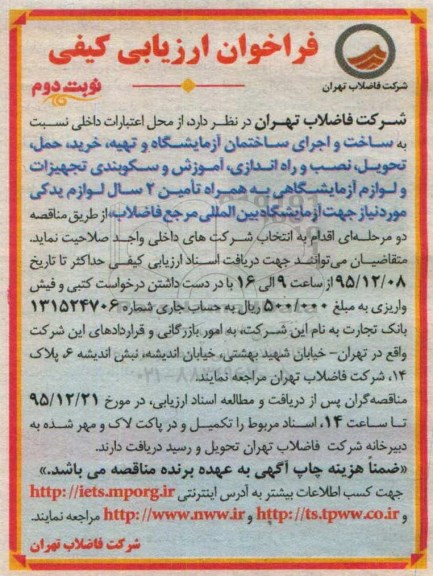 فراخوان ارزیابی کیفی
شرکت فاضلاب تهران
نوبت دوم
شرکت فاضلاب تهران در نظر دارد، از محل اعتبارات داخلی نسبت
به ساخت و اجرای ساختمان آزمایشگاه و تهیه، خرید، حمل،
تحویل، نصب و راه اندازی، آموزش و سکوبندی تجهیزات
و لوازم آزمایشگاهی به همراه تأمین ۲ سال لوازم یدکی
موردنیاز جهت آزمایشگاه بین المللی مرجع فاضلاب، از طریق مناقصه
دو مرحله‌ای اقدام به انتخاب شرکت های داخلی واجد صلاحیت نماید.
متقاضیان می‌توانند جهت دریافت اسناد ارزیابی کیفی حداکثر تا تاریخ
۹۵/۱۲/۰۸ از ساعت ۹ الی ۱۶ با در دست داشتن درخواست کتبی و فیش
واریزی به مبلغ ۵۰۰/۰۰۰ ریال به حساب جاری شماره ۱۳۱۵۲۴۷۰۶
بانک تجارت به نام این شرکت، به امور بازرگانی و قراردادهای این شرکت
واقع در تهران- خیابان شهید بهشتی، خیابان اندیشه، نبش اندیشه ۶، پلاک
۱۴، شرکت فاضلاب تهران مراجعه نمایند.
مناقصه‌گران پس از دریافت و مطالعه اسناد ارزیابی، در مورخ ۹۵/۱۲/۲۱
تا ساعت ۱۴، اسناد مربوط را تکمیل و در پاکت لاک و مهر شده به
دبیرخانه شرکت فاضلاب تهران تحویل و رسید دریافت دارند.
«ضمناً هزینه چاپ آگهی به عهده برنده مناقصه می باشد.»
جهت کسب اطلاعات بیشتر به آدرس اینترنتی http://iets.mporg.ir
و http://ts.tpww.co.ir و http://www.nww.ir مراجعه نمایند.
شرکت فاضلاب تهران